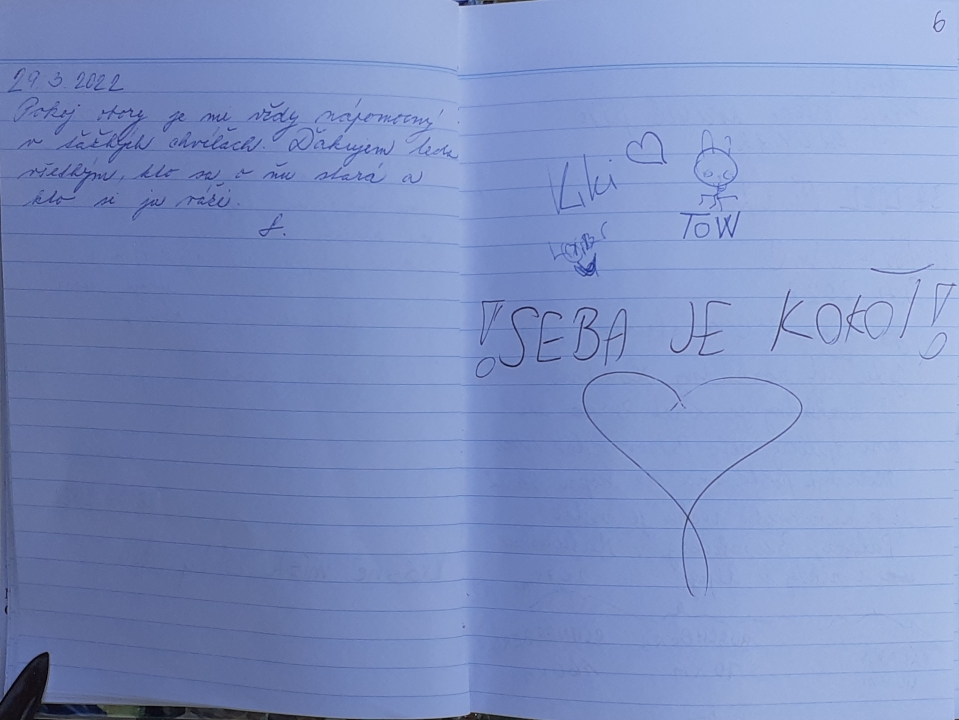 29.3.2022
Pokoj hory je mi vždy nápomocný
v ťažkých chvíľach. Ďakujem teda
všetkým, kto sa o ňu stará a
kto si ju váži.
S.
6
Kiki
TOW
!SEBA JE KOKOT!